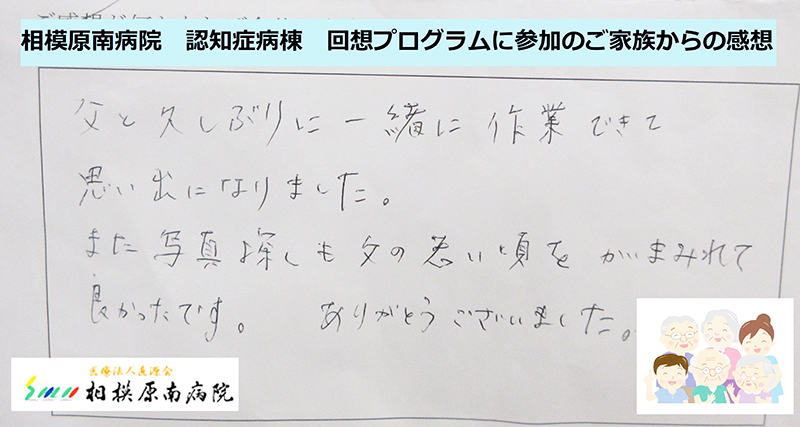 相模原南病院　認知症病棟　回想プログラムに参加のご家族からの感想
父と久しぶりに一緒に作業できて
思い出になりました。
また写真探しも父の若い頃をがいまみれて
良かったです。　ありがとうございました。
医療法人直源会
相模原南病院